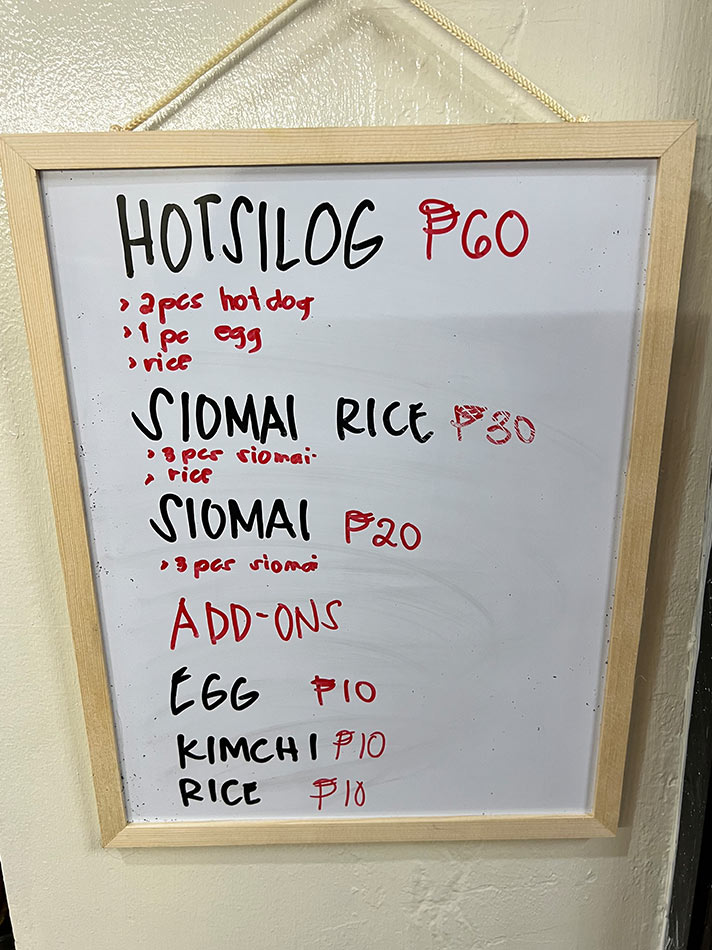 HOTSILOG ₱60
> 2pcs hotdog
> 1 pc egg
> rice
SIOMAI RICE ₱30
> 3 pcs siomai
> rice
SIOMAI ₱20
> 3 pcs siomai
ADD-ONS
EGG ₱10
KIMCHI ₱10
RICE ₱10